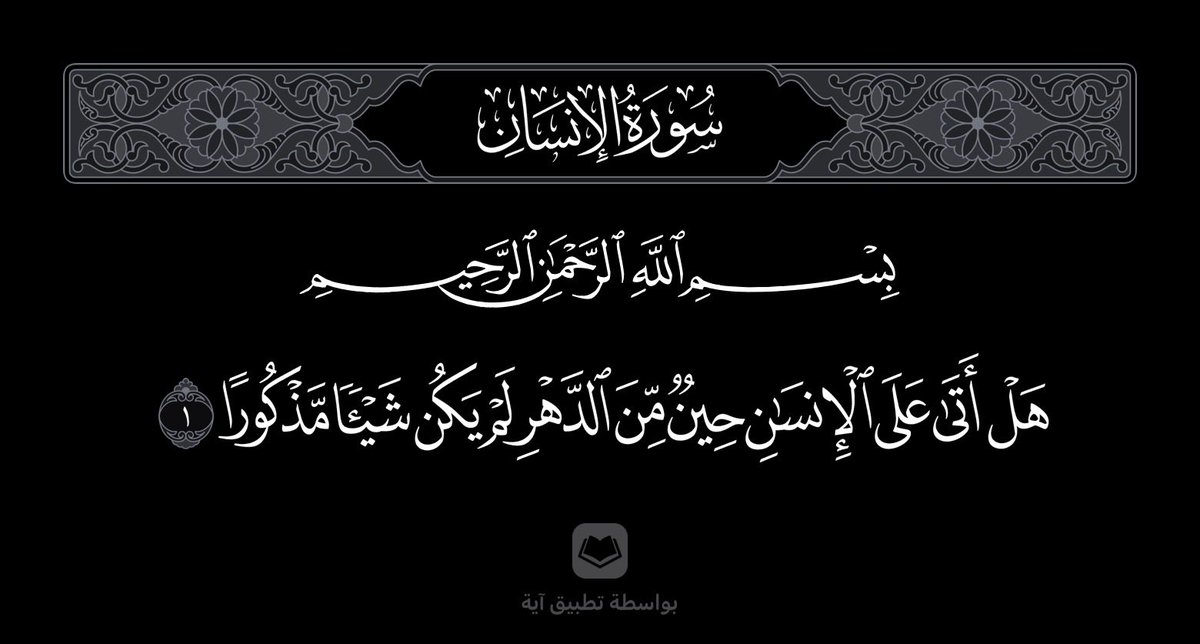 سُورَةُ الإِنسَانِ
بِسْمِ ٱللَّهِ ٱلرَّحْمَٰنِ ٱلرَّحِيمِ
هَلْ أَتَىٰ عَلَى ٱلْإِنسَٰنِ حِينٌۭ مِّنَ ٱلدَّهْرِ لَمْ يَكُن شَيْـًۭٔا مَّذْكُورًا ١
بواسطة تطبيق آية